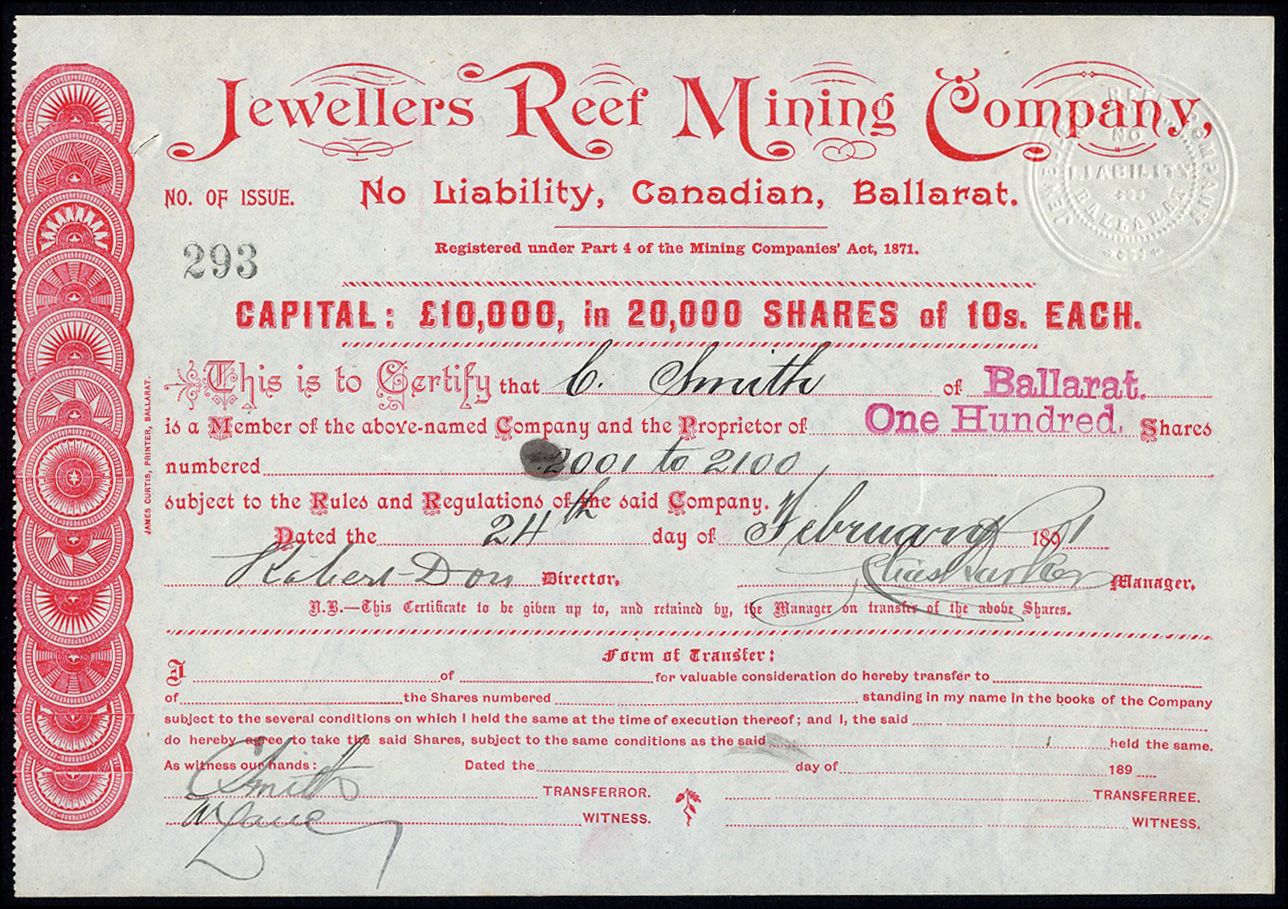 Jewellers Reef Mining Company,
NO. OF ISSUE.
No Liability, Canadian, Ballarat.
REEF COMPANY
NO
LIABILITY
BALLARAT
Registered under Part 4 of the Mining Companies' Act, 1871.
293
CAPITAL: £10,000, in 20,000 SHARES of 10s. EACH.
This is to Certify that C. Smith of Ballarat.
is a Member of the above-named Company and the Proprietor of One Hundred. Shares
numbered 2001 to 2100,
subject to the Rules and Regulations of the said Company.
Dated the 24th day of February 1891
Robert Don Director. Manager.
N.B.—This Certificate to be given up to, and retained by, the Manager on transfer of the above Shares.
JAMES CURTIS, PRINTER, BALLARAT.
Form of Transfer:
I of for valuable consideration do hereby transfer to
of the Shares numbered standing in my name in the books of the Company
subject to the several conditions on which I held the same at the time of execution thereof; and I, the said
do hereby agree to take the said Shares, subject to the same conditions as the said held the same.
As witness our hands: Dated the day of 189
C Smith TRANSFERROR. TRANSFERREE.
WITNESS. WITNESS.